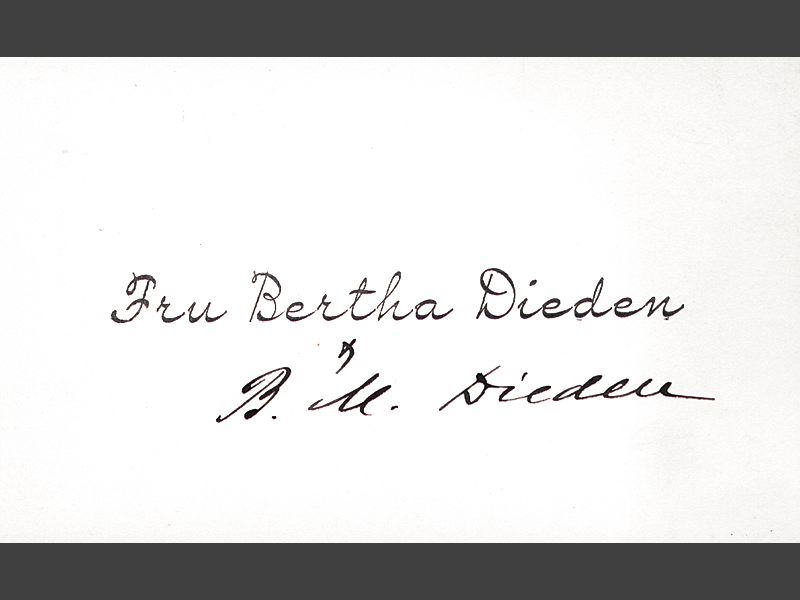 Fru Bertha Dieden
B. M. Dieden